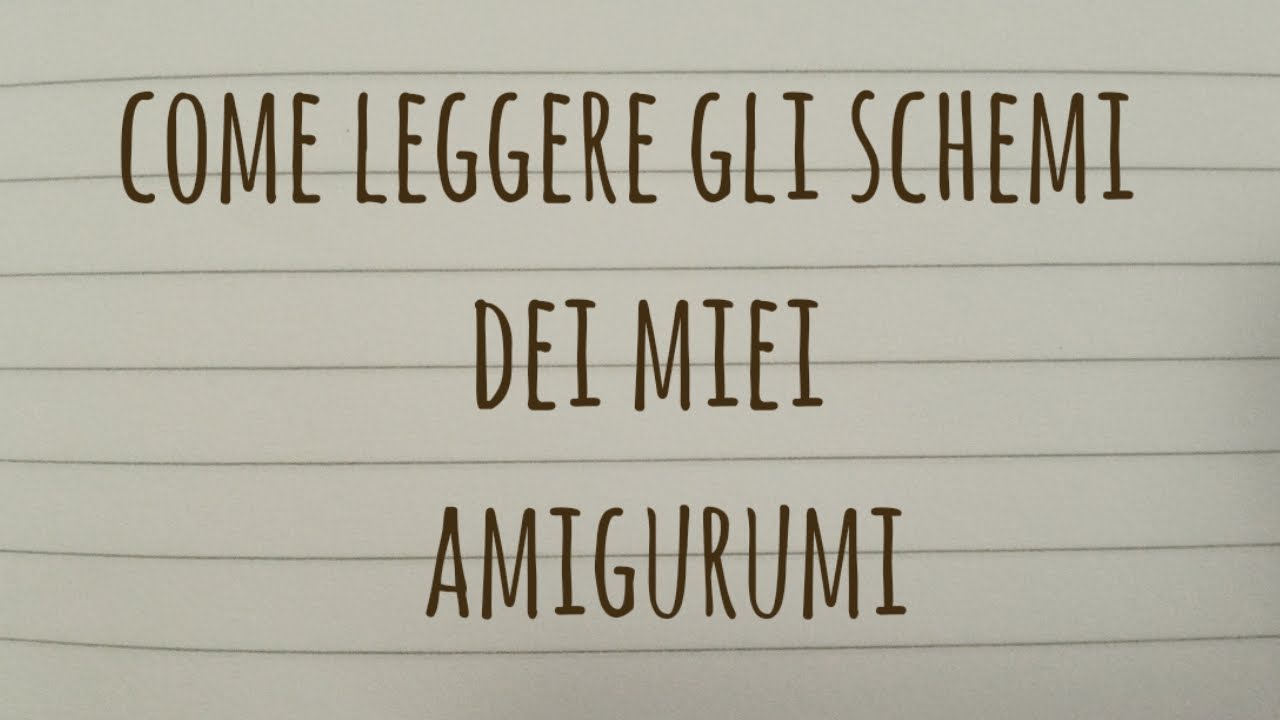 COME LEGGERE GLI SCHEMI
DEI MIEI
AMIGURUMI